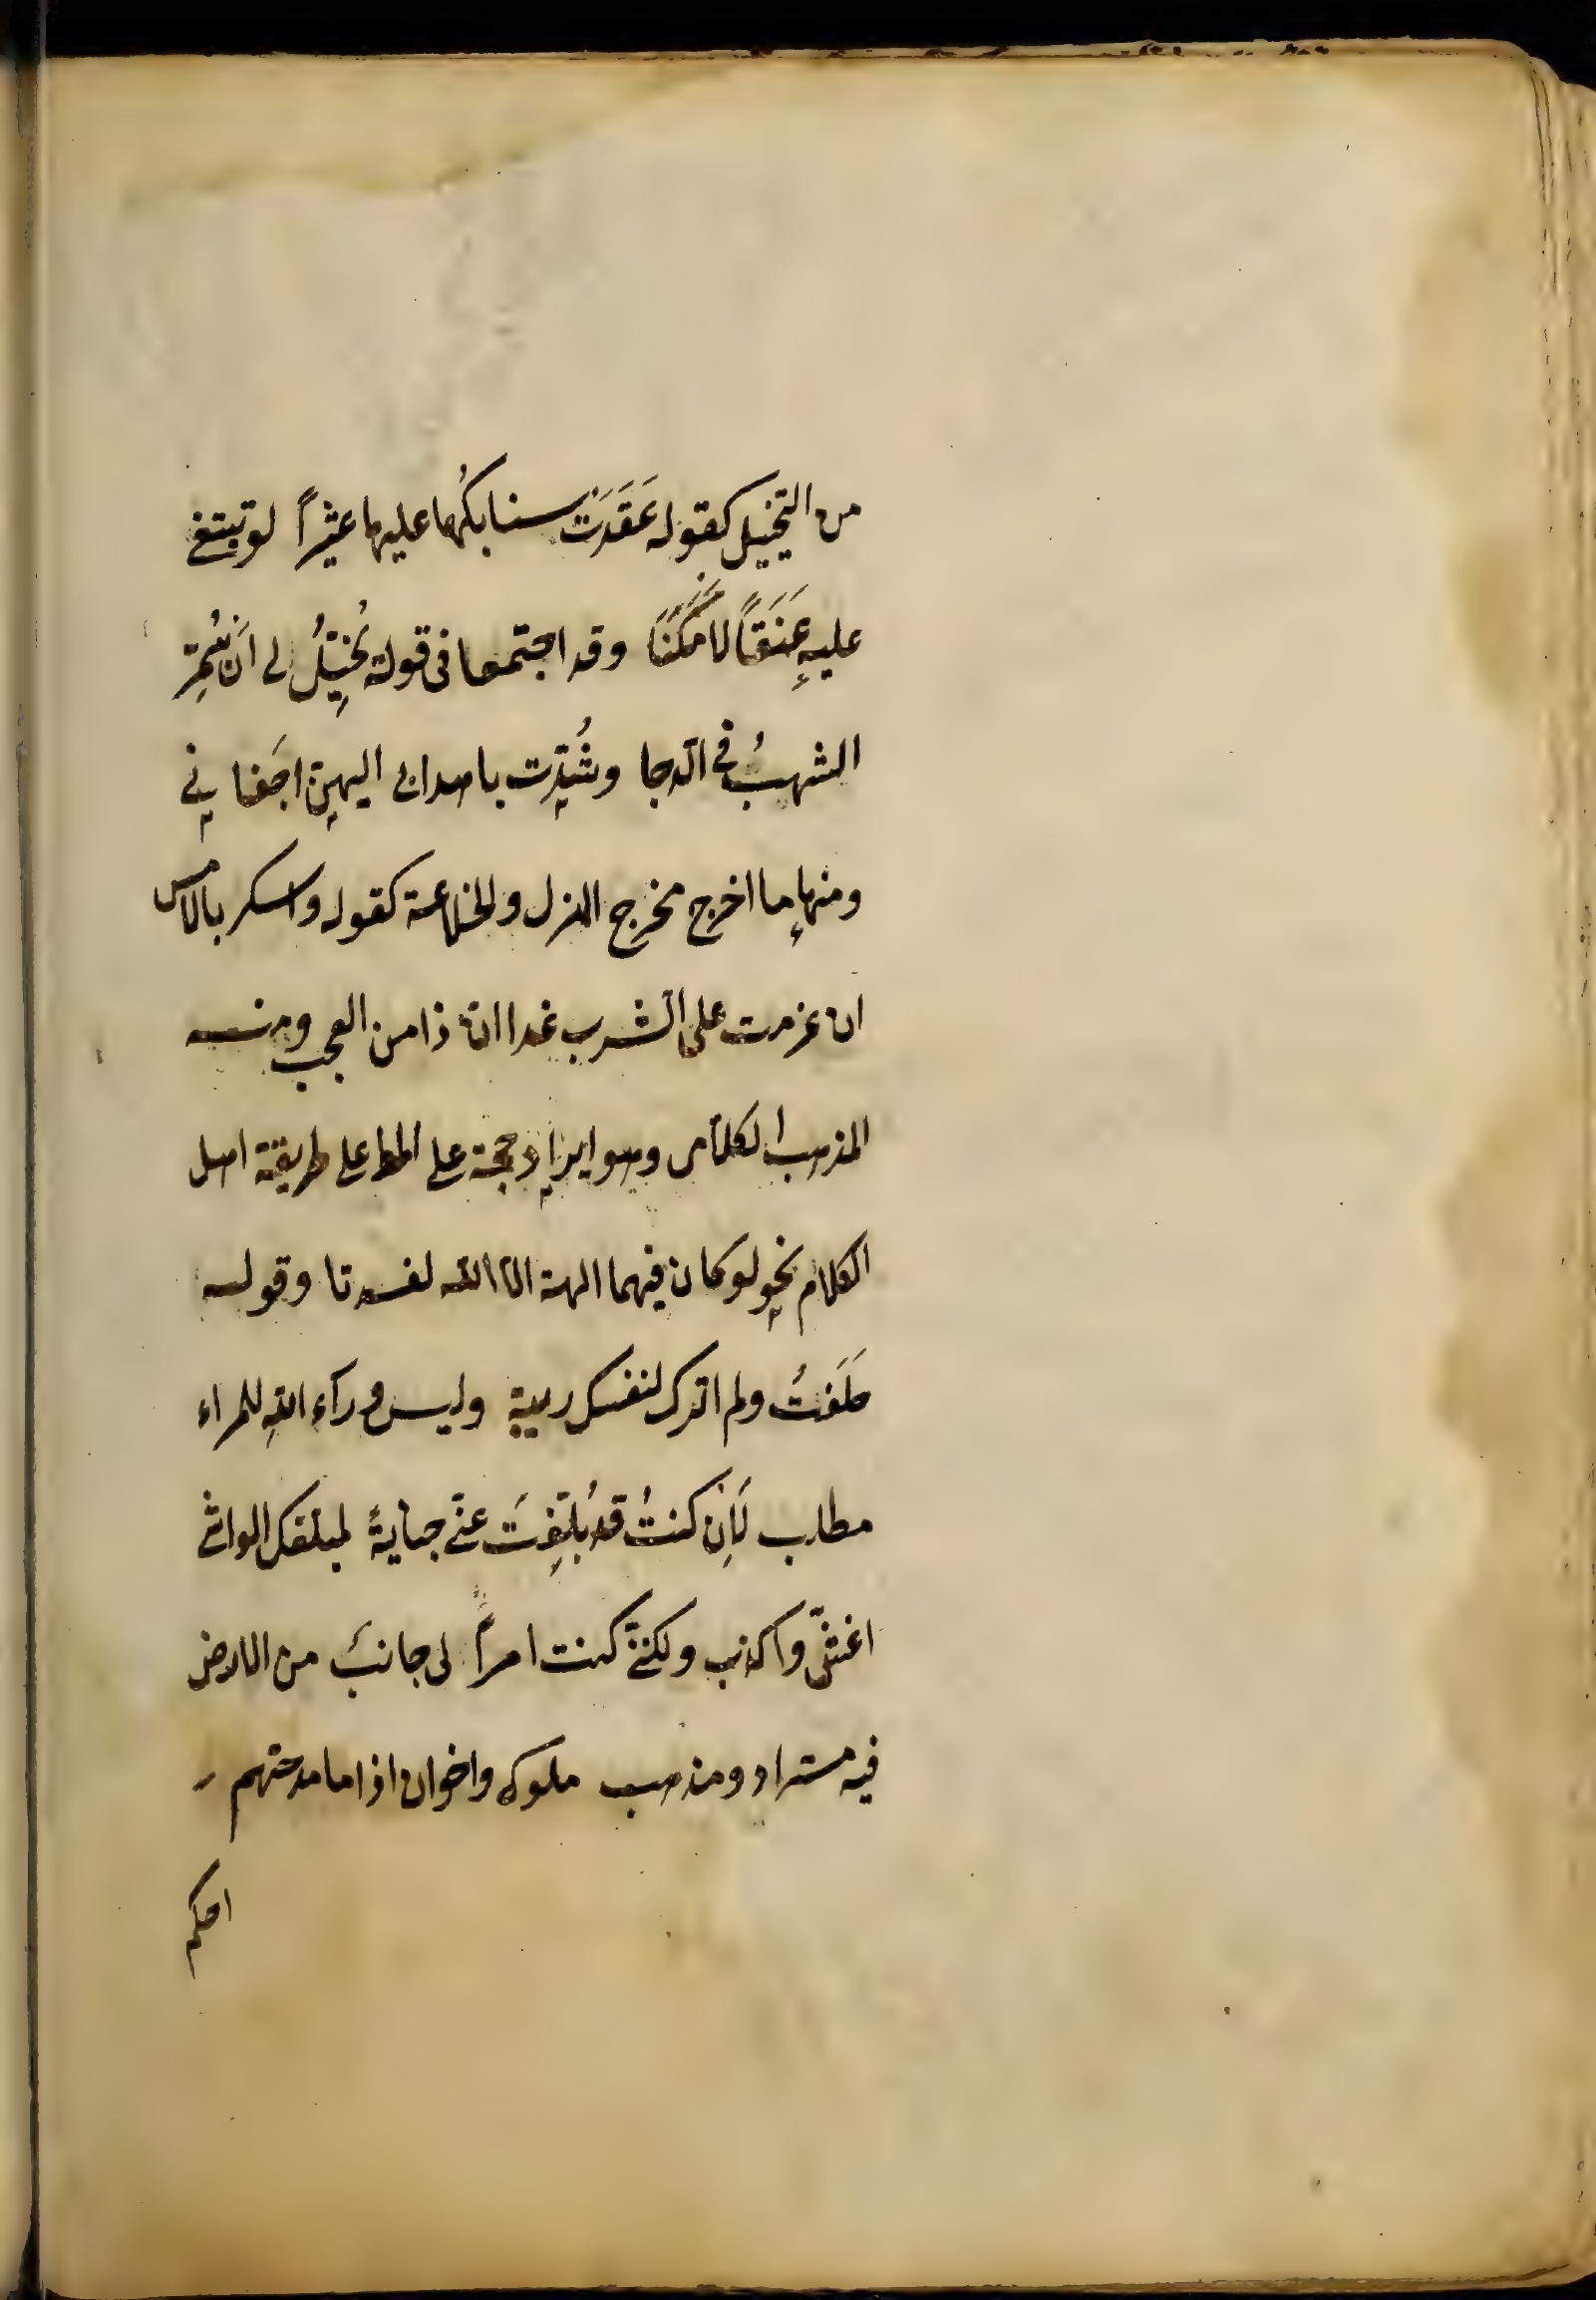 من التخييل كقوله عَقَدَت سنابكُها عليها عثيراً لو تبتغى
عليهِ عَنَقاً لامكَنَا وقد اجتمعا فى قوله يُخيّلُ لى اَن سُمِّرَ
الشهبُ فى الدجا وشُدّت باهدابى اليهنّ اجفانى
ومنها ما اخرج مخرج الهزل والخلاعة كقوله واسكر بالامس
ان عزمت على الشرب غدا انّ ذا من العجب ومنه
المذهب الكلامى وهو ايراد حجة على المط على طريقة اهل
الكلام نحو لو كان فيهما الهة الا الله لفسدتا وقوله
حَلَفتُ ولم اترك لنفسك ريبة وليس ورآء اللهِ للمراء
مطلب لَاِن كنتُ قد بُلّغِتَ عنّى جنايةً لمبلغك الواشى
اغشّ واكذب ولكننى كنت امرأً لى جانبٌ من الارض
فيه مستراد ومذهب ملوك واخوان اذا ما مدحتهم
احكم